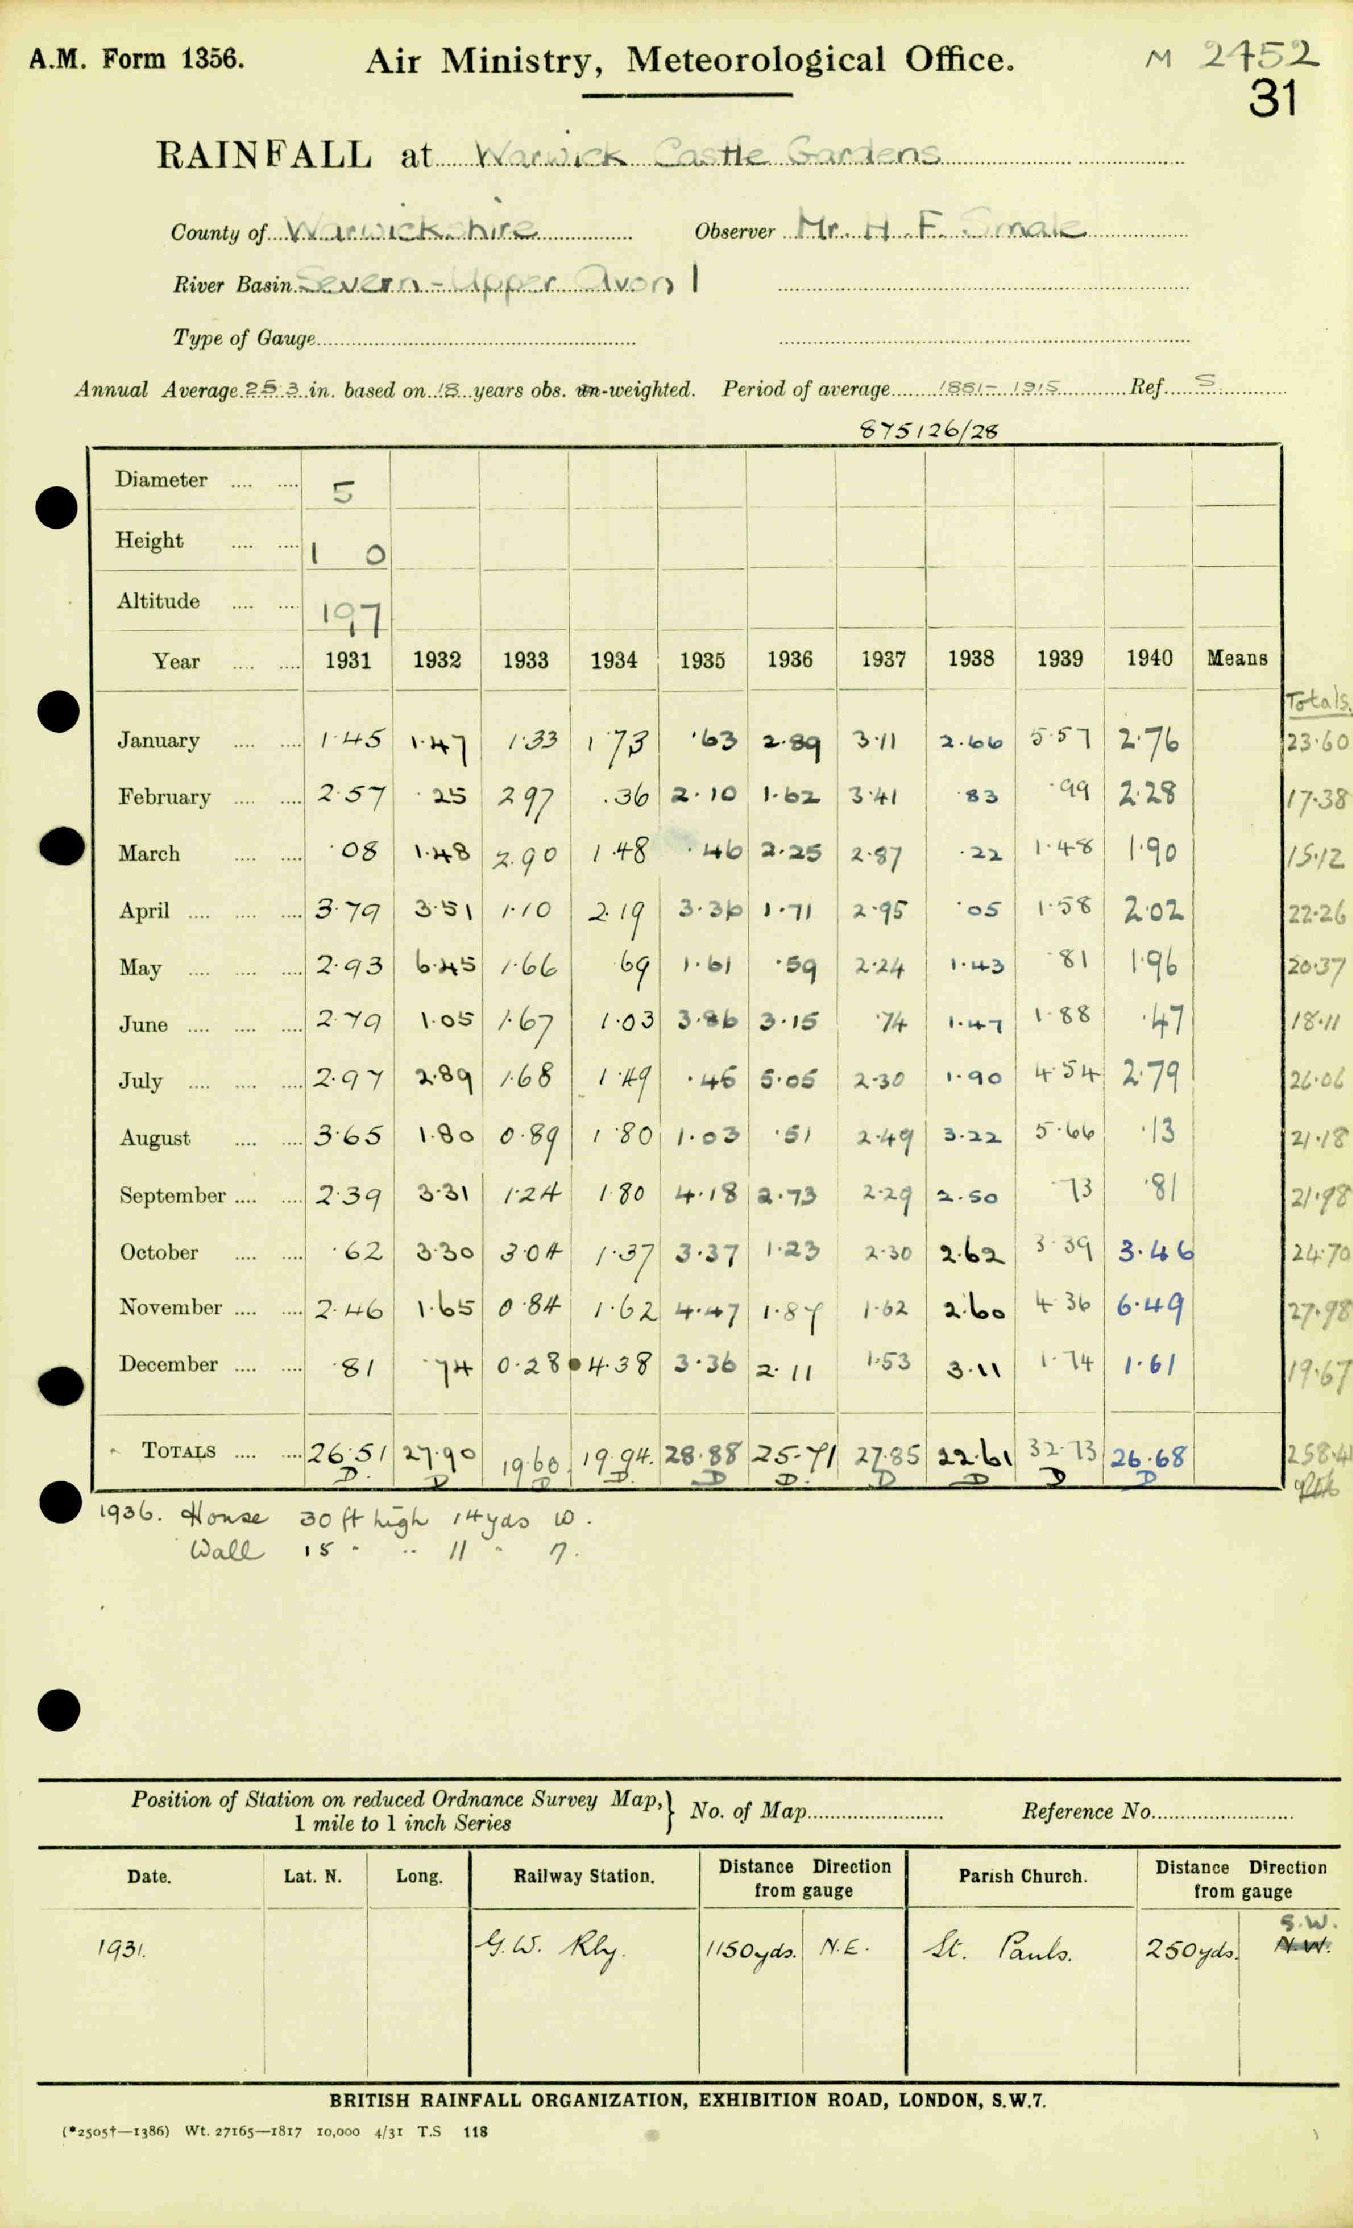 A.M. Form 1356.
Air Ministry, Meteorological Office.
M 2752
31
RAINFALL at Warwick Castle Gardens
County of Warwickshire Observer Mr. H. F. Smale
River Basin Severn-Upper Avon 1
Type of Gauge
Annual Average 25.3 in. based on 18 years obs. un-weighted. Period of average 1881-1915 Ref. S.
875126/28
Diameter 5
Height 1 0
Altitude 197
Year 1931 1932 1933 1934 1935 1936 1937 1938 1939 1940 Means
Totals.
January 1.45 1.47 1.33 1.73 .63 2.89 3.11 2.66 5.57 2.76 23.60
February 2.57 .25 2.97 .36 2.10 1.62 3.41 .83 .99 2.28 17.38
March .08 1.48 2.90 1.48 .46 2.25 2.87 .22 1.48 1.90 15.12
April 3.79 3.51 1.10 2.19 3.36 1.71 2.95 .05 1.58 2.02 22.26
May 2.93 6.45 1.66 .69 1.61 .59 2.24 1.43 .81 1.96 20.37
June 2.79 1.05 1.67 1.03 3.86 3.15 .74 1.47 1.88 .47 18.11
July 2.97 2.89 1.68 1.49 .45 5.05 2.30 1.90 4.54 2.79 26.06
August 3.65 1.80 0.89 1.80 1.03 .51 2.49 3.22 5.66 .13 21.18
September 2.39 3.31 1.24 1.80 4.18 2.73 2.29 2.50 .73 .81 21.98
October .62 3.30 3.04 1.37 3.37 1.23 2.30 2.62 3.39 3.46 24.70
November 2.46 1.65 0.84 1.62 4.47 1.87 1.62 2.60 4.36 6.49 27.98
December .81 .74 0.28 4.38 3.36 2.11 1.53 3.11 1.74 1.61 19.67
TOTALS 26.51 27.90 19.60 19.94 28.88 25.71 27.85 22.61 32.73 26.68 258.41
D. D D D. D D. D D D D
1936. House 30 ft high 14 yds W.
Wall 15 " " 11 " 7.
Position of Station on reduced Ordnance Survey Map,} No. of Map Reference No.
1 mile to 1 inch Series
Date. Lat. N. Long. Railway Station. Distance Direction from gauge Parish Church. Distance Direction from gauge
S.W.
1931. G.W. Rly. 1150 yds. N.E. St. Pauls. 250 yds. N.W.
BRITISH RAINFALL ORGANIZATION, EXHIBITION ROAD, LONDON, S.W.7.
(*2505†—1386) Wt. 27165—1817 10,000 4/31 T.S 118